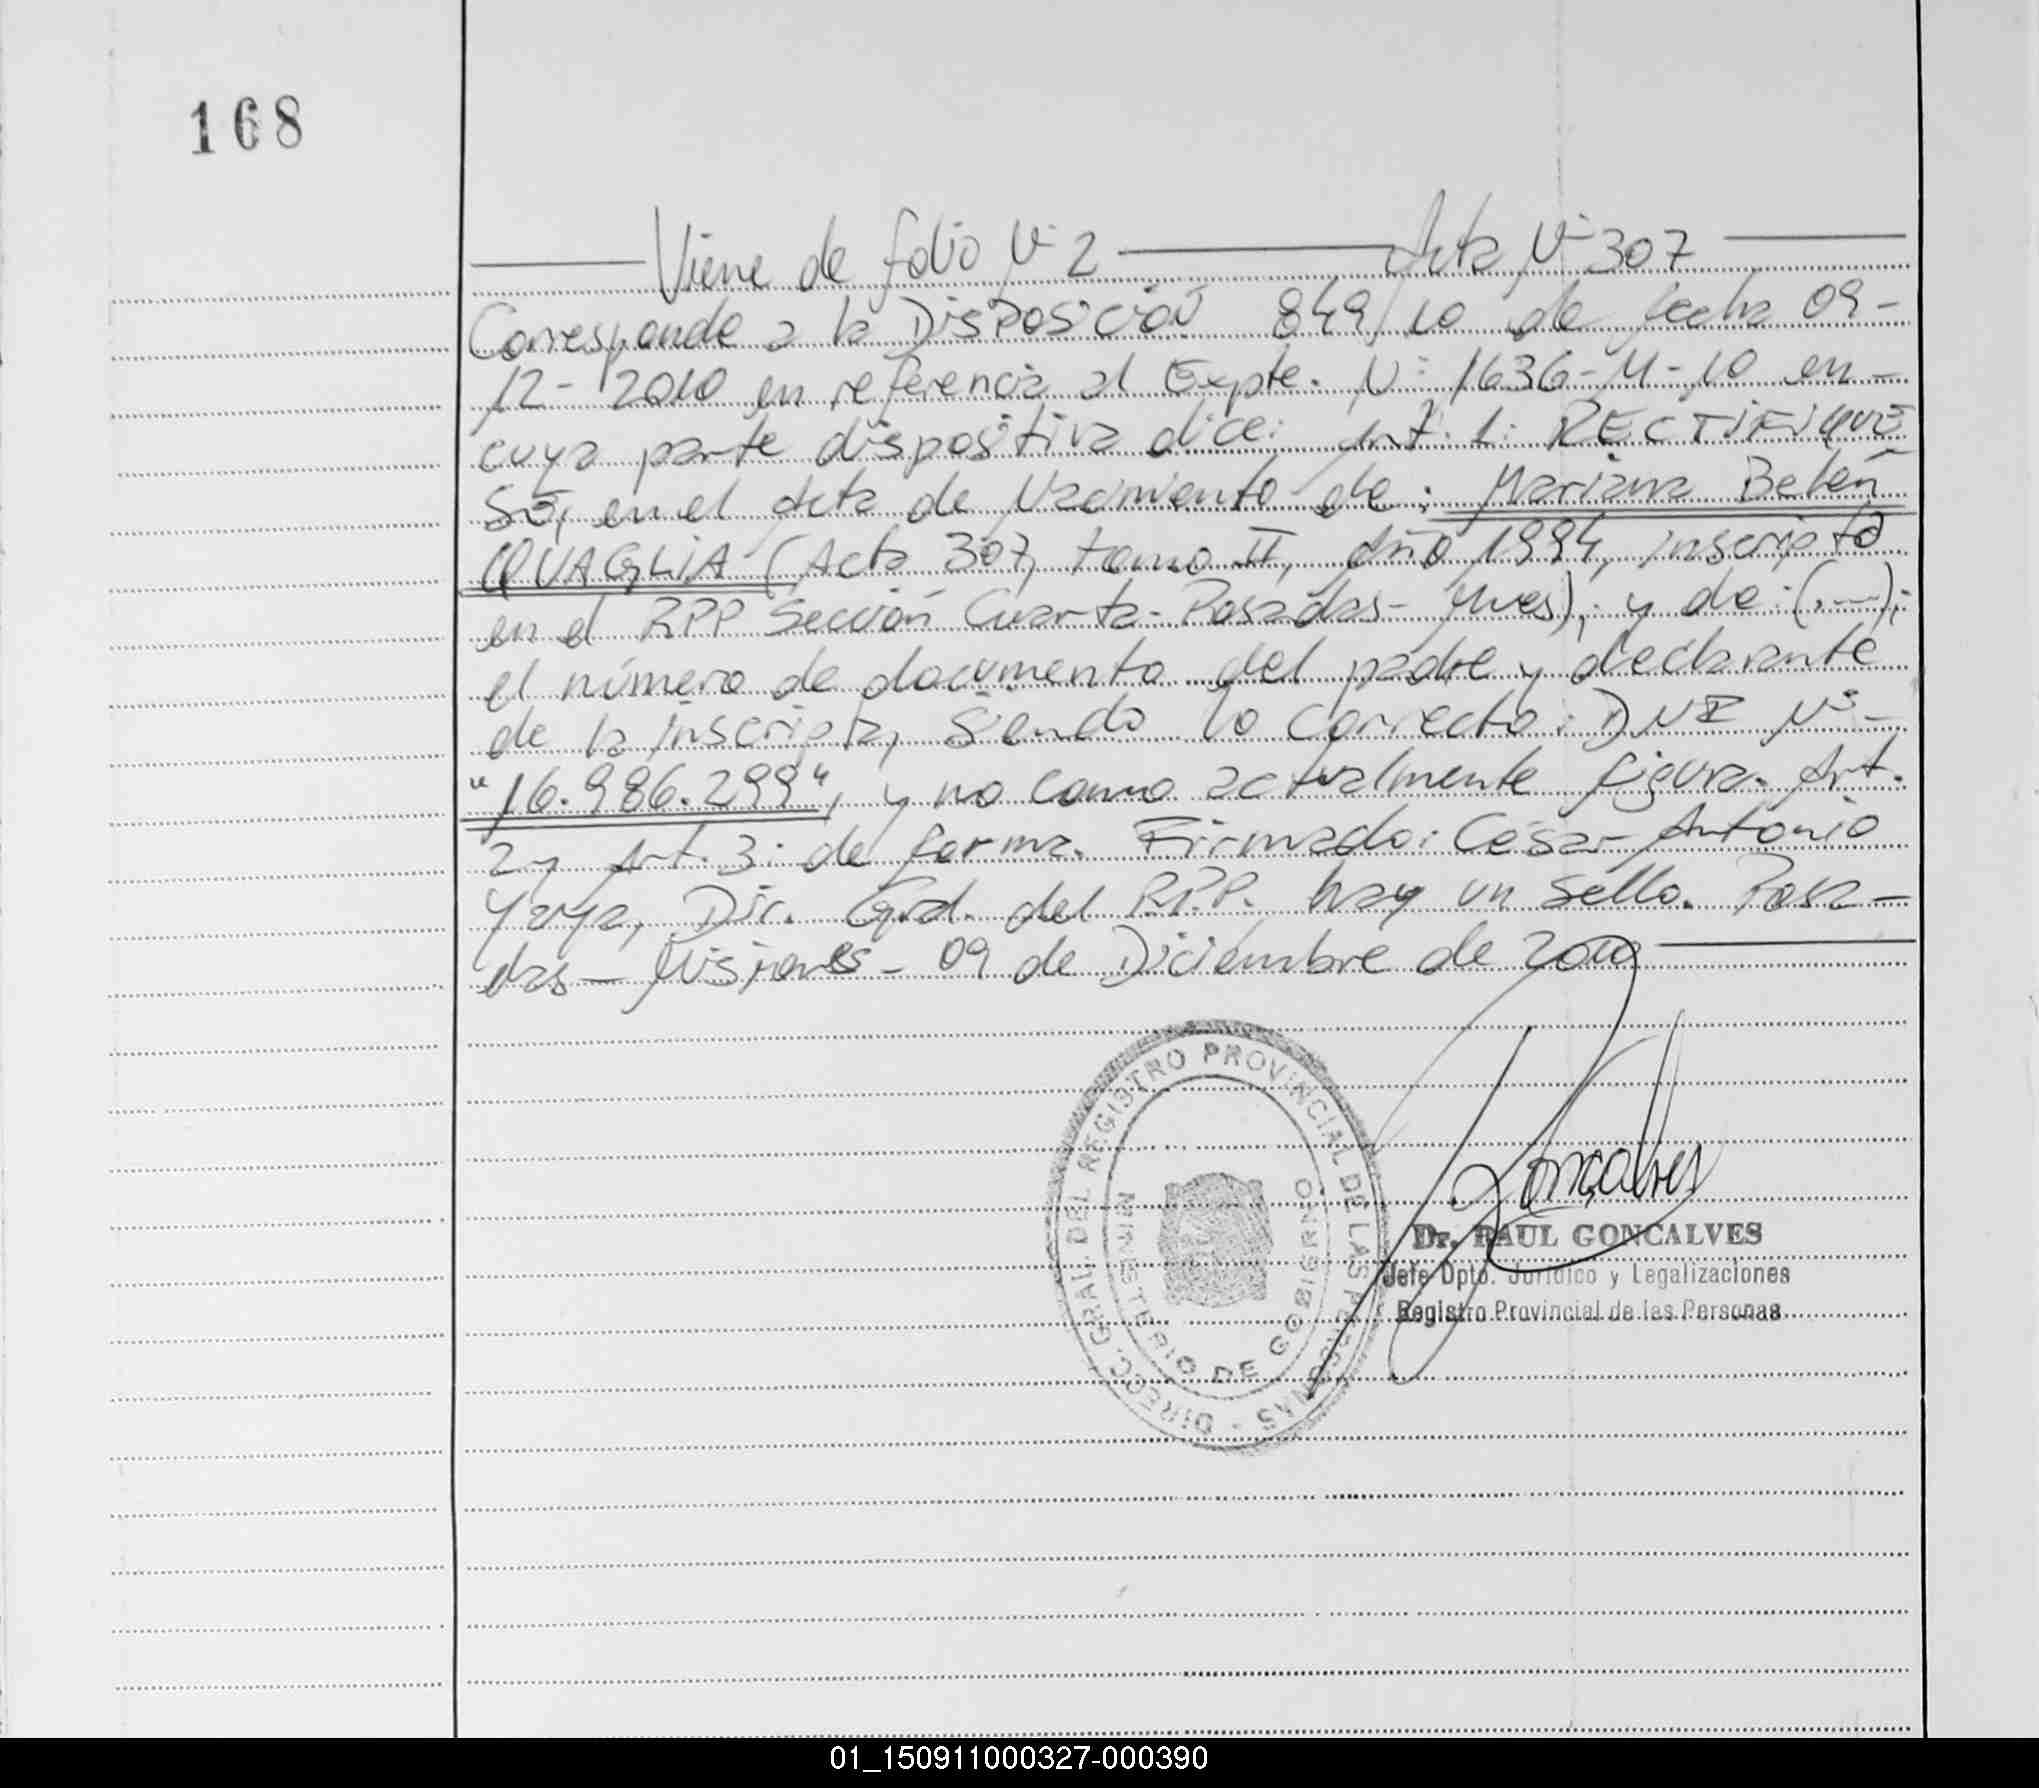 168
Viene de folio Nº 2 — Acta Nº 307
Corresponde a la DISPOSICIÓN 849/10 de fecha 09-
12-2010 en referencia al Expte. Nº 1636-M-10 en-
cuya parte dispositiva dice: Art. 1: RECTIFIQUE
SE, en el Acta de Nacimiento de: Mariana Belén
QUAGLIA (Acta 307, tomo II, Año 1994, inscripta
en el RPP Sección Cuarta-Posadas-Mnes); y de:(.—);
el número de documento del padre y declarante
de la inscripta, Siendo lo correcto: DNI Nº-
"16.986.299", y no como actualmente figura. Art.
2 y Art. 3: de forma. Firmado: César Antonio
Yaya, Dir. Gral. del R.P.P. hay un sello. Posa-
das-Misiones- 09 de Diciembre de 2010
DIRECC. GRAL. DEL REGISTRO PROVINCIAL DE LAS PERSONAS -
MINISTERIO DE GOBIERNO
Goncalves
Dr. RAUL GONCALVES
Jefe Dpto. Jurídico y Legalizaciones
Registro Provincial de las Personas
01_150911000327-000390